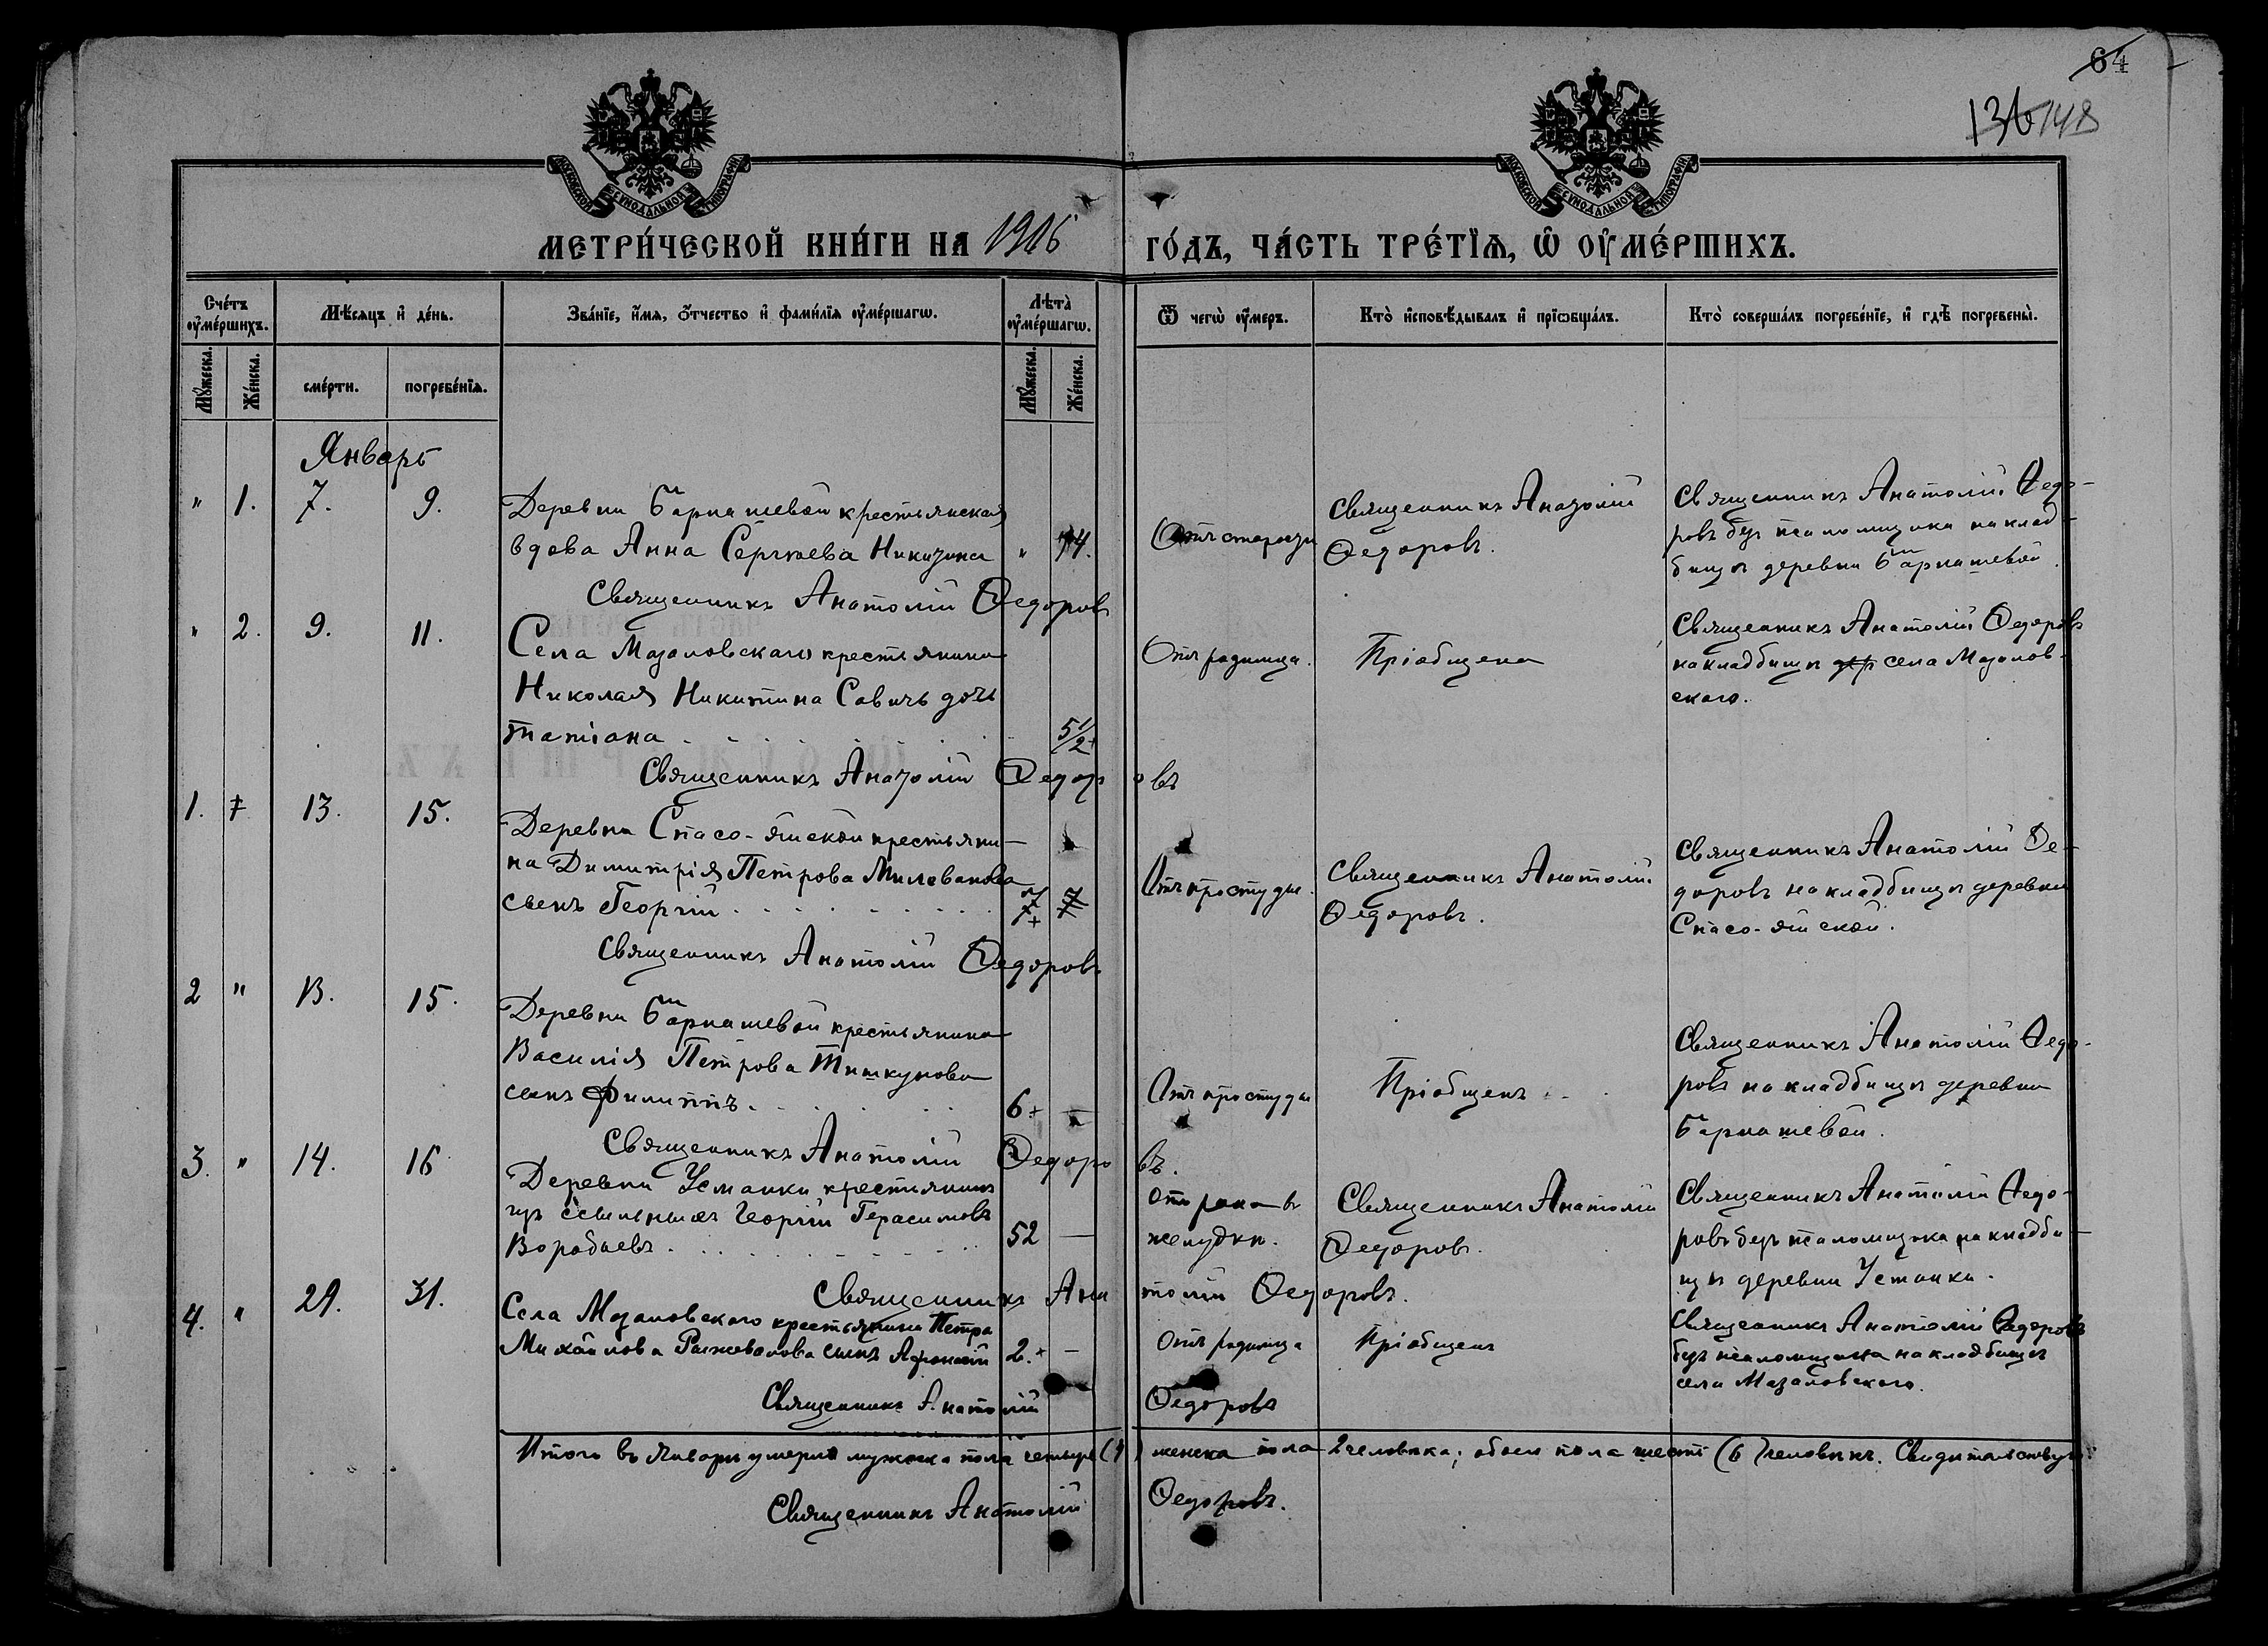 64
136 148
МОСКОВСКОЙ СѴНОДАЛЬНОЙ ТИПОГРАФІИ
МОСКОВСКОЙ СѴНОДАЛЬНОЙ ТИПОГРАФІИ
МЕТРИ́ЧЕСКОЙ КНИ́ГИ НА 1916 ГО́ДЪ, ЧА́СТЬ ТРЕ́ТЇѦ, Ѡ҆ ОУ҆МЕ́РШИХЪ.
Сче́тъ оу҆ме́ршихъ.
Мѣ́сяцъ и҆ де́нь.
Зва́нїе, и҆́мя, ѻ҆́тчество и҆ фами́лїя оу҆ме́ршагѡ.
Лѣта̀ оу҆ме́ршагѡ.
Ѿ чегѡ̀ оу҆́меръ.
Кто̀ и҆сповѣ́дывалъ и҆ прїѡбща́лъ.
Кто̀ соверша́лъ погребе́нїе, и҆ гдѣ̀ погребены̀.
Мꙋ́жеска.
Же́нска.
сме́рти.
погребе́нїя.
Мꙋ́жеска.
Же́нска.
Январь
" 1. 7. 9.
Деревни Барнашевой крестьянская
вдова Анна Сергѣева Никитина " 74.
Священникъ Анатолій Ѳедоровъ
Отъ старости
Священникъ Анатолій
Ѳедоровъ.
Священникъ Анатолій Ѳедо-
ровъ безъ псаломщика на клад-
бищѣ деревни Барнашевой
" 2. 9. 11.
Села Мазаловскаго крестьянина
Николая Никитина Савичъ дочь
Татіана 5 1/2
Священникъ Анатолій Ѳедоровъ
Отъ родимца.
Пріобщена
Священникъ Анатолій Ѳедоровъ
на кладбищѣ дер села Мазалов-
скаго.
1. 13. 15.
Деревни Спасо-Яйской крестьяни-
на Димитрія Петрова Милованова
сынъ Георгій 7
Священникъ Анатолій Ѳедоровъ
Отъ простуды.
Священникъ Анатолій
Ѳедоровъ.
Священникъ Анатолій Ѳе-
доровъ на кладбищѣ деревни
Спасо-Яйской.
2 " 13. 15.
Деревни Барнашевой крестьянина
Василія Петрова Тишкунова
сынъ Филиппъ. 6 —
Священникъ Анатолій Ѳедоровъ.
Отъ простуды
Пріобщенъ
Священникъ Анатолій Ѳедо-
ровъ на кладбищѣ деревни
Барнашевой.
3. " 14. 16
Деревни Усманки крестьянинъ
изъ ссыльныхъ Георгій Герасимовъ
Воробьевъ. 52 —
Священникъ Анатолій Ѳедоровъ.
Отъ рака въ
желудкѣ.
Священникъ Анатолій
Ѳедоровъ.
Священникъ Анатолій Ѳедо-
ровъ безъ псаломщика на кладби-
щѣ деревни Усманки.
4. " 29. 31.
Села Мазаловскаго крестьянина Петра
Михайлова Рыжевалова сынъ Афонасій 2. —
Священникъ Анатолій Ѳедоровъ
Отъ родимца
Пріобщенъ
Священникъ Анатолій Ѳедоровъ
безъ псаломщика на кладбищѣ
села Мазаловскаго.
Итого въ Январѣ умерло мужска пола четыре (4) женска пола 2 человѣка; обоего пола шесть (6) человѣкъ. Свидѣтельствую:
Священникъ Анатолій Ѳедоровъ.